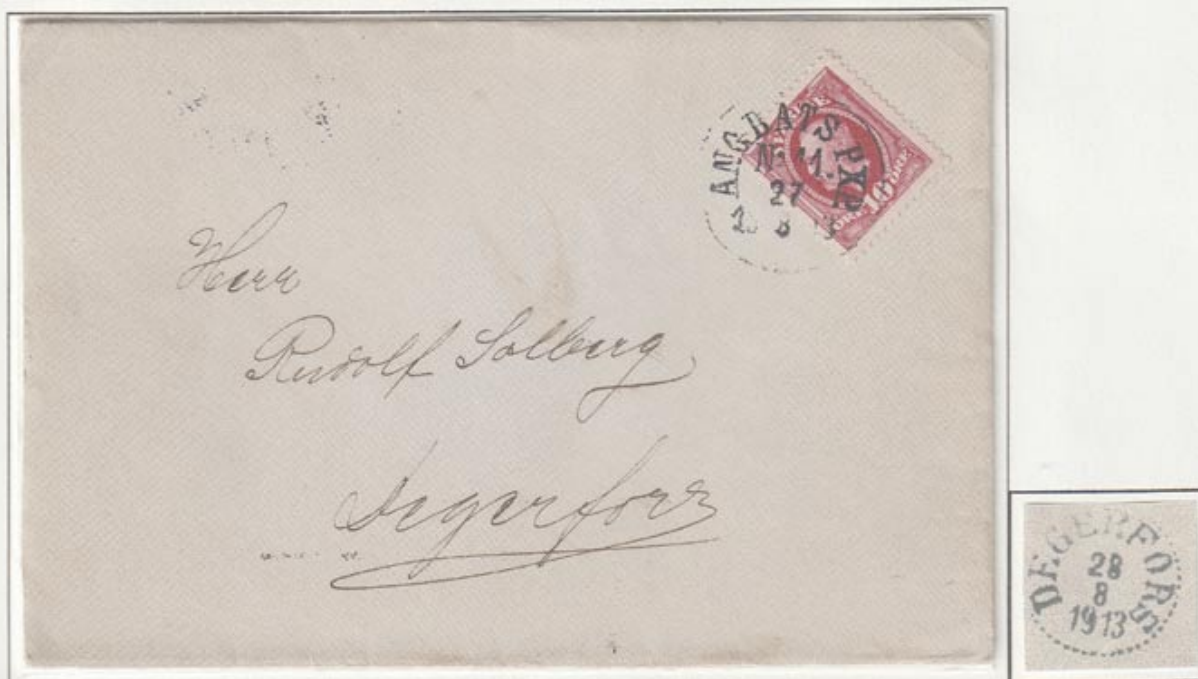 ANGBATS PXP
N: 11.
27
8
10 ÖRE
Herr
Rudolf Solberg
Degerfors
DEGERFORS
28
8
1913